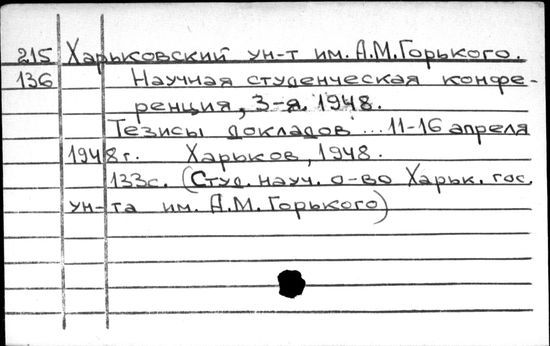 215 Харьковский ун-т им. А.М.Горького.
136 Научная студенческая конфе-
ренция, 3-я. 1948.
Тезисы докладов ... 11-16 апреля
1948г. Харьков, 1948.
133с. (Студ. науч. о-во Харьк. гос.
ун-та им. А.М.Горького)